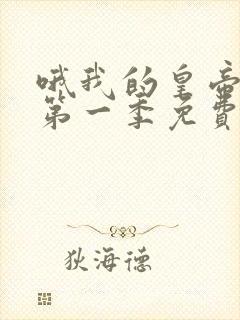 哦我的皇帝
第一季免费
狄海德